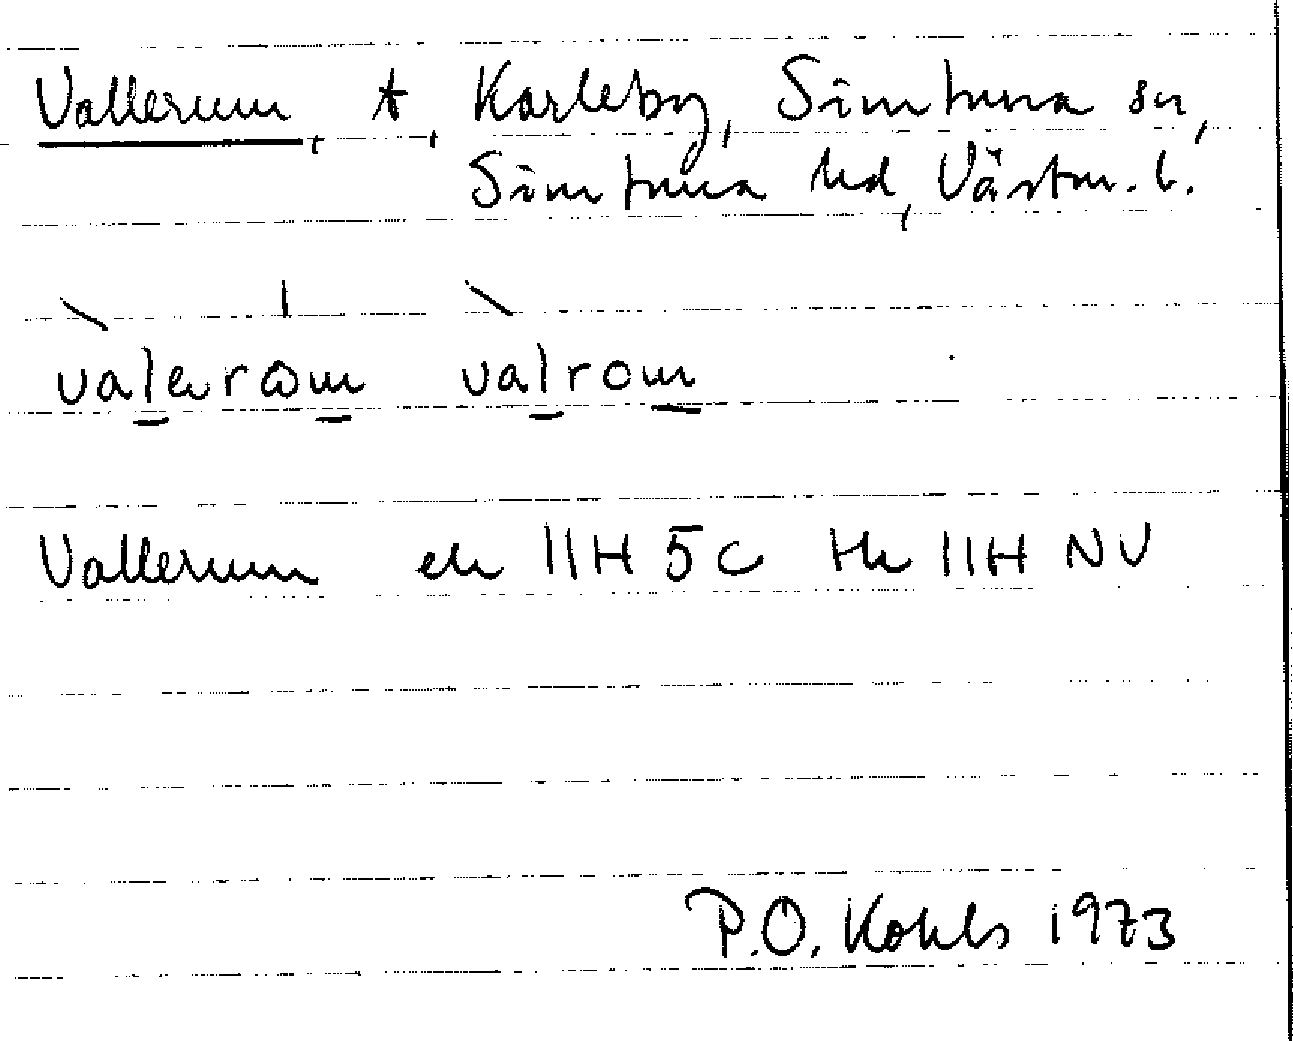 Vallerum, t, Karleby, Simtuna sn,
Simtuna hd, Västm. l.
valerωm valrom
Vallerum ek 11H 5C Hk 11H NV
P.O. Kohls 1973